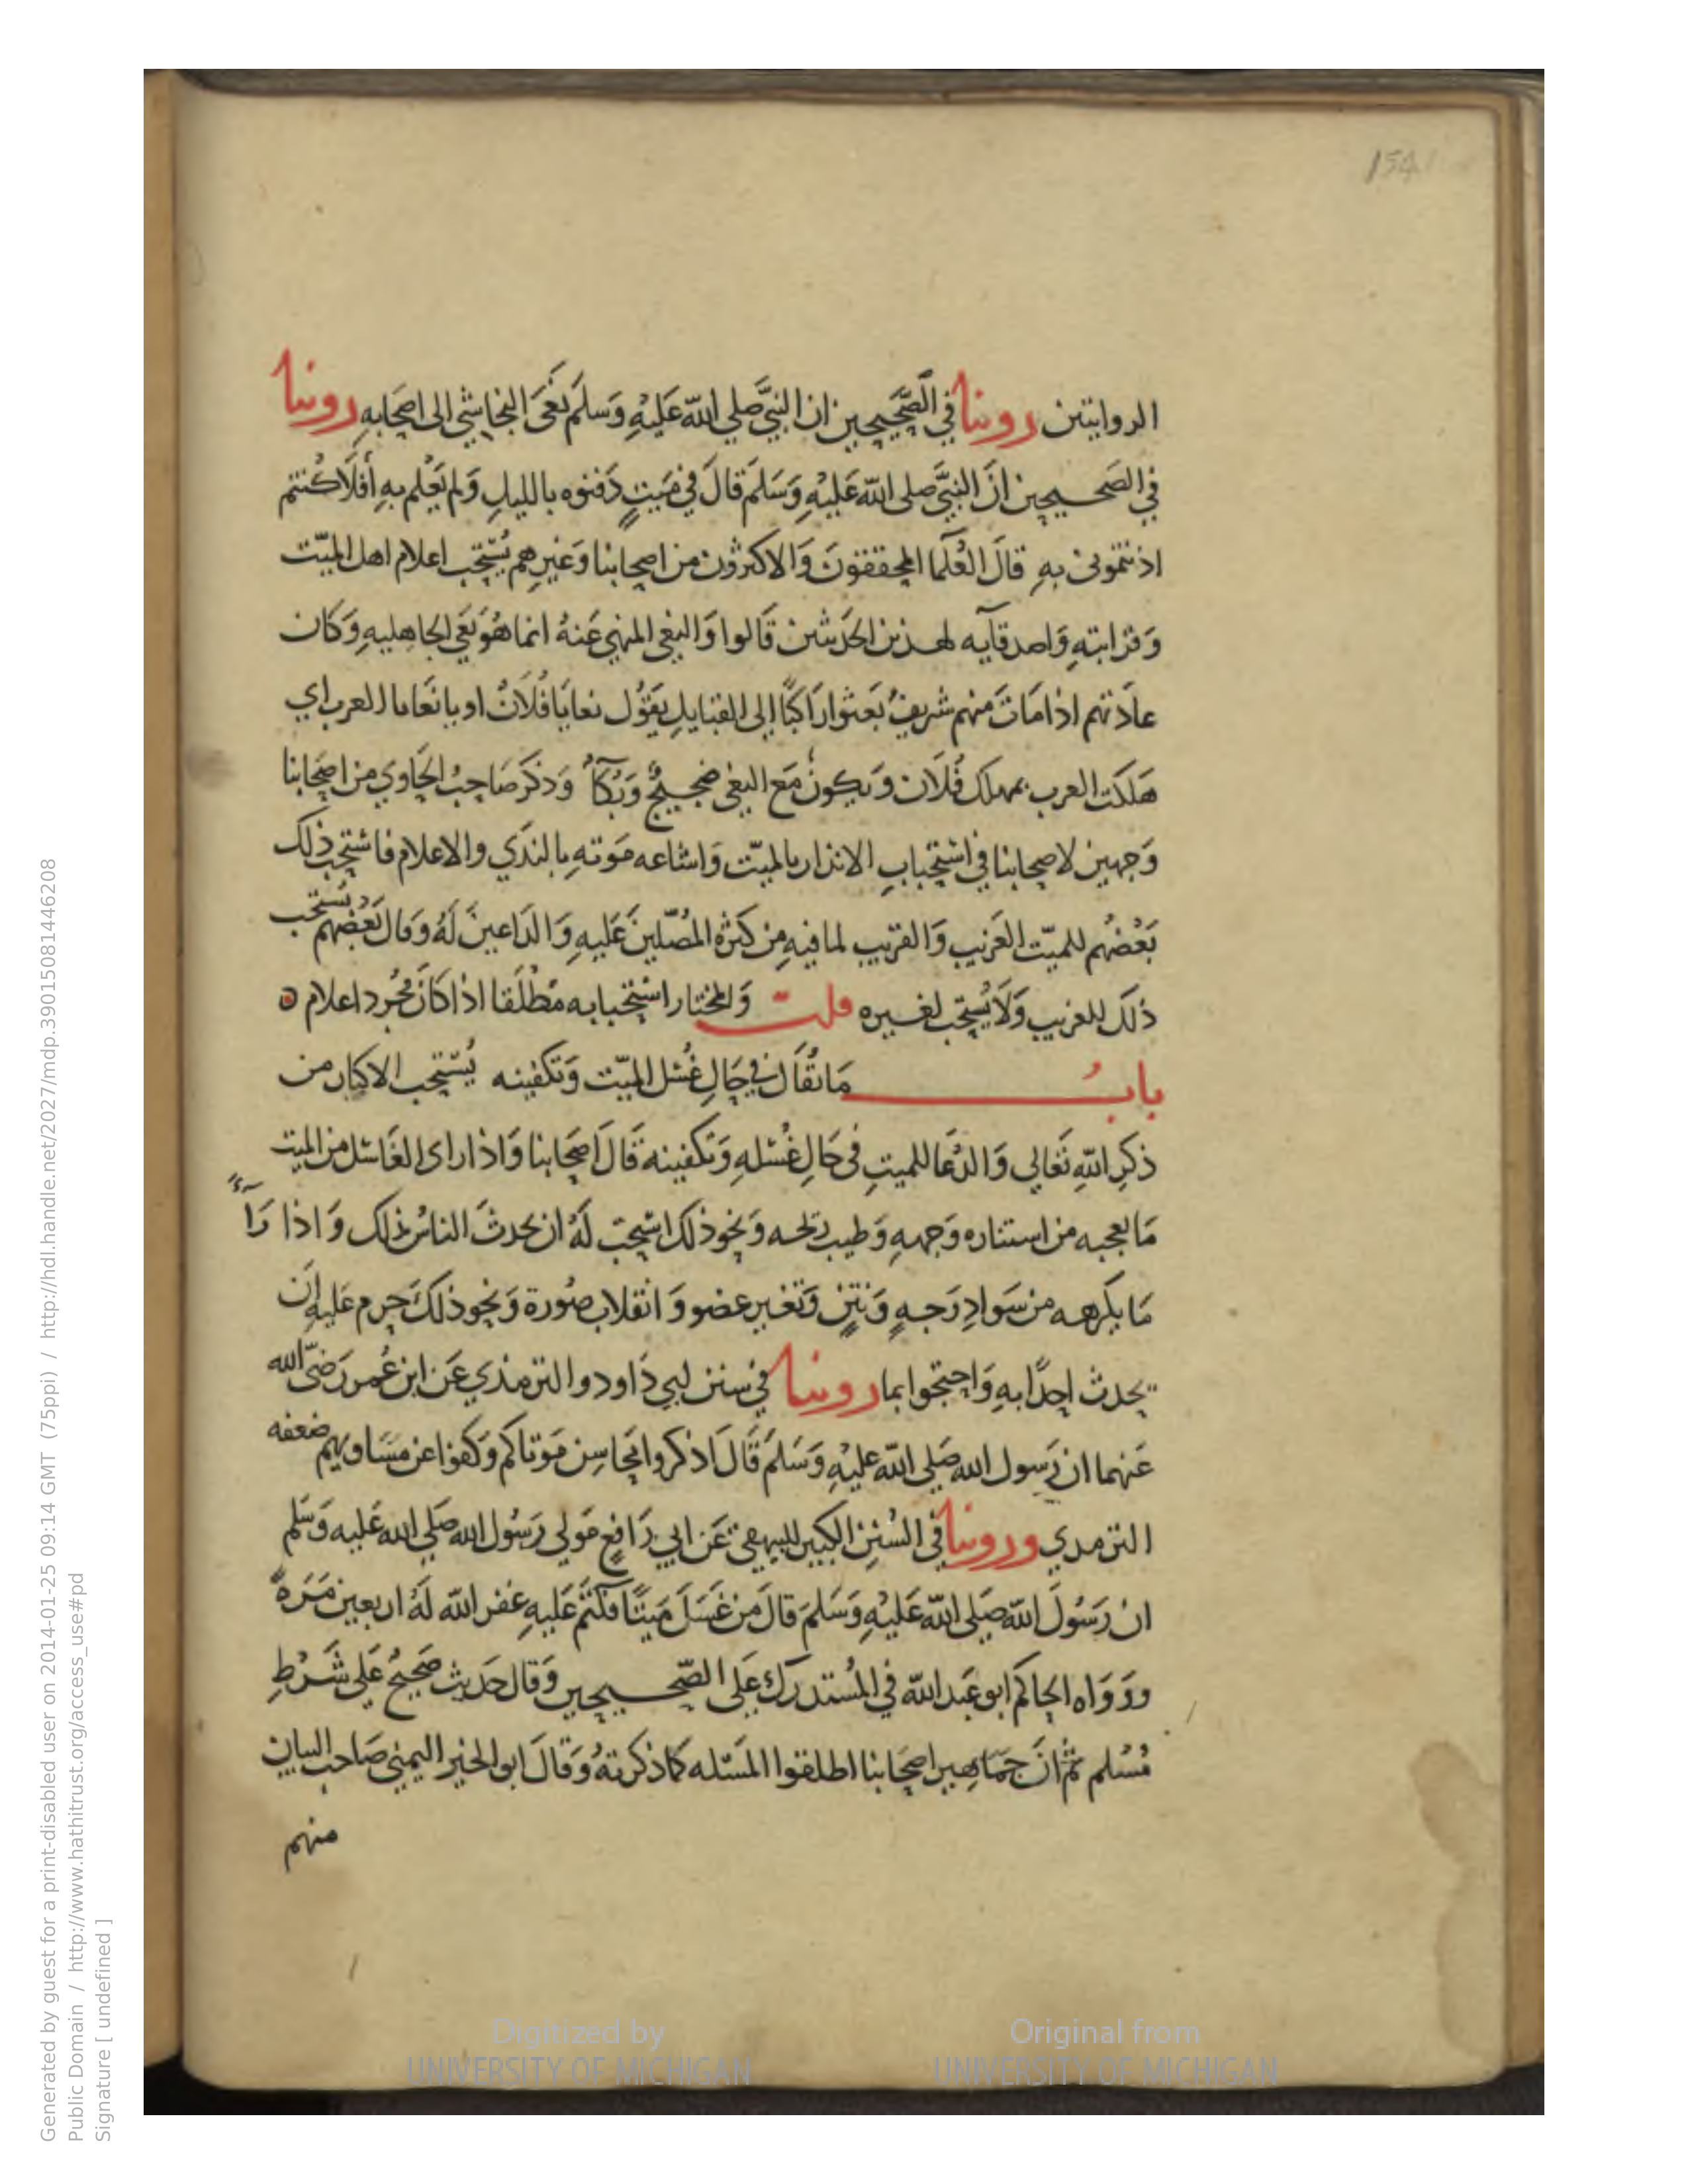 154
الروايتين روينا في الصَّحِيحين ان النبيَّ صلي الله عَليْهِ وَسلَم نَعَى النجاشي الى اصحَابهِ روينا
في الصَحيحين انَّ النبيَّ صلى الله عَليْهِ وَسَلَم قالَ في مَيتٍ دَفنوه بالليلِ وَلم يَعْلم بهِ أفَلَا كُنتم
اذنتموني بهِ قالَ العُلَما المحققونَ وَالاكثرون من اصحابنا وَغيرِهم يُستحب اعلام اهل الميّت
وَقرابتهِ وَاصدقآيه لهذين الحَديثين قَالوا وَالنعي المنهي عَنهُ انما هُوَ نَعي الجاهليهِ وَكان
عادَتهم اذا مَاتَ منهم شريفٌ بَعثوا رَاكبًا إلى القبايلِ يقَوُل نعايَا فُلَانٌ او يا نَعَايا العرب اي
هَلكَت العرب بمهلك فُلَان وَيكون مَع النعي ضجيجٌ وَبُكآءٌ وَذكَر صَاحِبُ الحَاوي من اصحَابنا
وَجهين لاصحابنا في استحبابِ الانذار بالميّت وَاشاعه مَوتهِ بالندَي والاعلام فاستحب ذلك
بَعْضُهم للميّت العَريب وَالقريب لما فيهِ من كثرة المُصَلّينَ عَليهِ وَالدَاعينَ لَهُ وَقال بَعْضهم يُستحب
ذلَك للغريبِ وَلَا يُستحب لغيره قلت وَالمختار استحبابه مُطْلَقا اذا كانَ مُجَرد اعلام ه
بابُ مَا يقَال في حَالِ غُسْل الميّت وَتكفينه يُستحب الاكثار من
ذكرِ اللهِ تَعَالي وَالدُعَا للميتِ في حَالِ غُسْلهِ وَتكفينه قَالَ اصحَابنا وَاذا راى الغَاسل من الميت
مَا يعجبه من استناره وَجههِ وَطيب ريحه وَنحو ذلك استحب لَهُ ان يحدثَ الناسُ بذلك وَاذا رَآءً
مَا يكرهه من سَوادِ وَجهٍ وَنتنٍ وَتغيير عضو وَانقلاب صُورة وَنحو ذلكَ حرم عَليهِ انَ
يحدث احدًا بهِ وَاحتجوا بما روينا في سنن ابي دَاود والترمذي عَن ابن عُمر رَضيّ الله
عَنهما ان رَسول الله صَلي الله عليْهِ وَسَلمَ قَالَ اذكروا محَاسِن مَوتاكم وَكفوا عن مسَاويهم ضعفه
الترمدي وروينا في السُنن الكبير للبيهقي عَن ابي رَافعٍ مَولي رَسُول الله صَلي الله عَليه وَسَلم
ان رَسُولَ الله صَلي الله عَليْهِ وَسَلمَ قالَ من غَسَلَ مَيتًا فكَتَم عَليهِ غفر الله لَهُ اربعين مَرَةً
وروَاه الحاكم ابو عَبد الله في المُستدركِ عَلى الصّحيحين وَقال حَديث صَحيحٌ عَلي شَرْطِ
مُسْلم ثم انَ جَمَاهير اصحَابنا اطلقوا المَسْله كما ذكرتهُ وَقالَ ابو الخير اليمني صَاحب البيان
منهم
Digitized by
UNIVERSITY OF MICHIGAN
Original from
UNIVERSITY OF MICHIGAN
Generated by guest for a print-disabled user on 2014-01-25 09:14 GMT (75ppi) / http://hdl.handle.net/2027/mdp.39015081446208
Public Domain / http://www.hathitrust.org/access_use#pd
Signature [ undefined ]